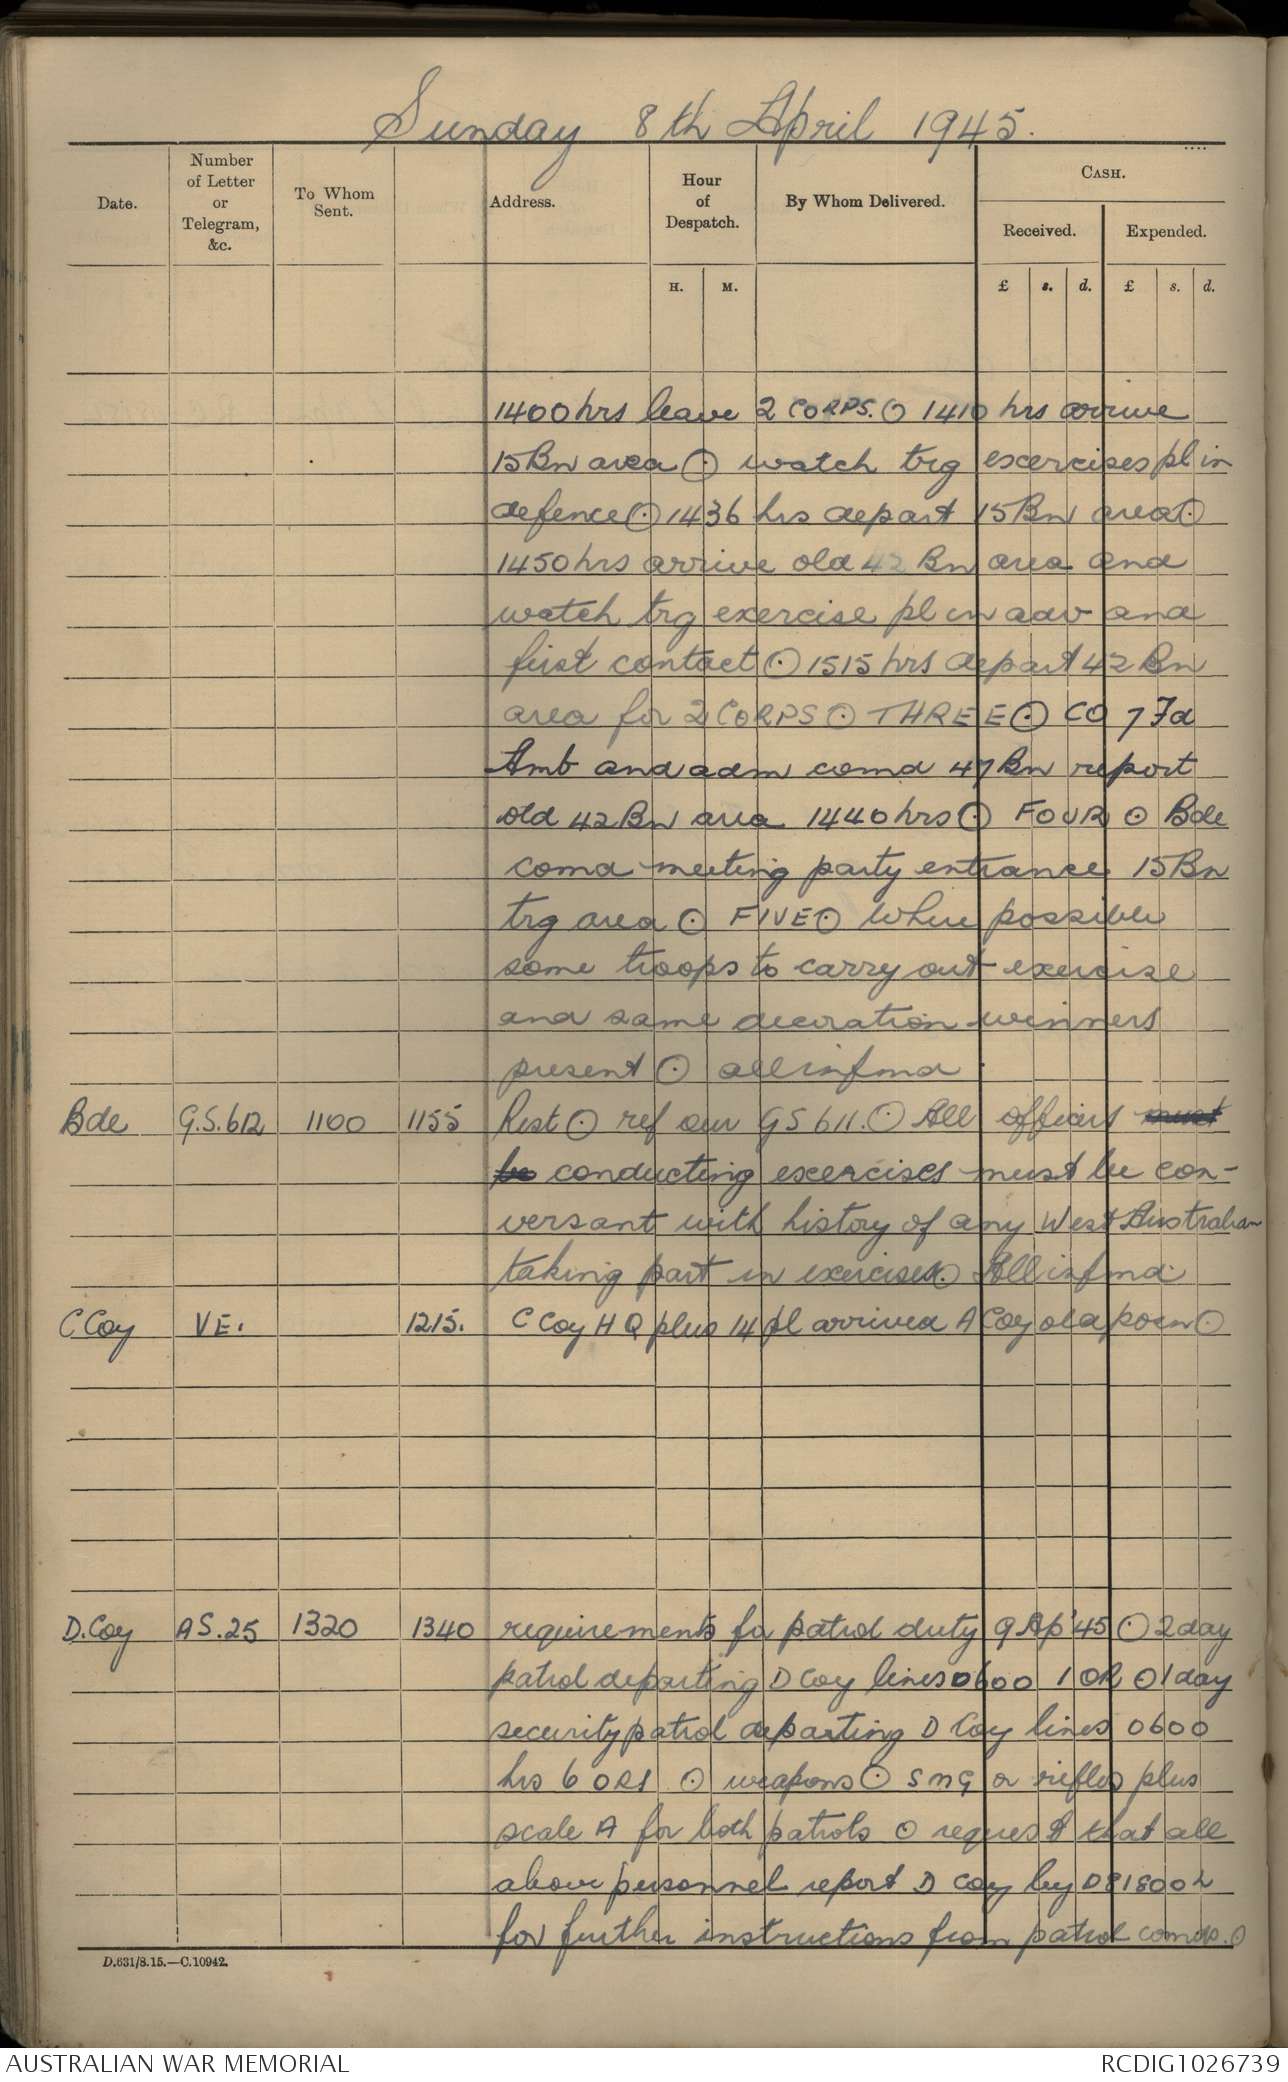 Sunday 8th April 1945.
Date.
Number of Letter or Telegram, &c.
To Whom Sent.
Address.
Hour of Despatch.
By Whom Delivered.
CASH.
Received.
Expended.
H. M. £ s. d. £ s. d.
1400hrs leave 2 CORPS. ⊙ 1410 hrs arrive
15Bn area ⊙ watch trg exercises pl in
defence ⊙ 1436 hrs depart 15Bn area ⊙
1450hrs arrive old 42 Bn area and
watch trg exercise pl in adv and
first contact ⊙ 1515 hrs depart 42 Bn
area for 2 CORPS ⊙ THREE ⊙ CO 7 Fd
Amb and adm comd 47 Bn report
old 42 Bn area 1440hrs ⊙ FOUR ⊙ Bde
comd meeting party entrance 15Bn
trg area ⊙ FIVE ⊙ Where possible
some troops to carry out exercise
and some decoration winners
present ⊙ all infmd
Bde G.S.612 1100 1155 Rest ⊙ ref our GS 611. ⊙ All officers must
be conducting exercises must be con-
versant with history of any West Australian
taking part in exercises. ⊙ All infmd.
C Coy VE. 1215. C Coy HQ plus 14 pl arrived A Coy old posn ⊙
D.Coy AS.25 1320 1340 requirements for patrol duty 9 Ap '45 ⊙ 2 day
patrol departing D Coy lines 0600 1 OR ⊙ 1 day
security patrol departing D Coy lines 0600
hrs 6 ORS ⊙ weapons ⊙ SMG or rifles plus
scale A for both patrols ⊙ request that all
above personnel report D Coy by 081800L
for further instructions from patrol comds. ⊙
D.631/8.15.—C.10942.
AUSTRALIAN WAR MEMORIAL
RCDIG1026739